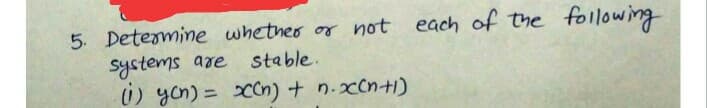 5. Determine whether or not each of the following
systems are stable.
(i) y(n) = x(n) + n.x(n+1)